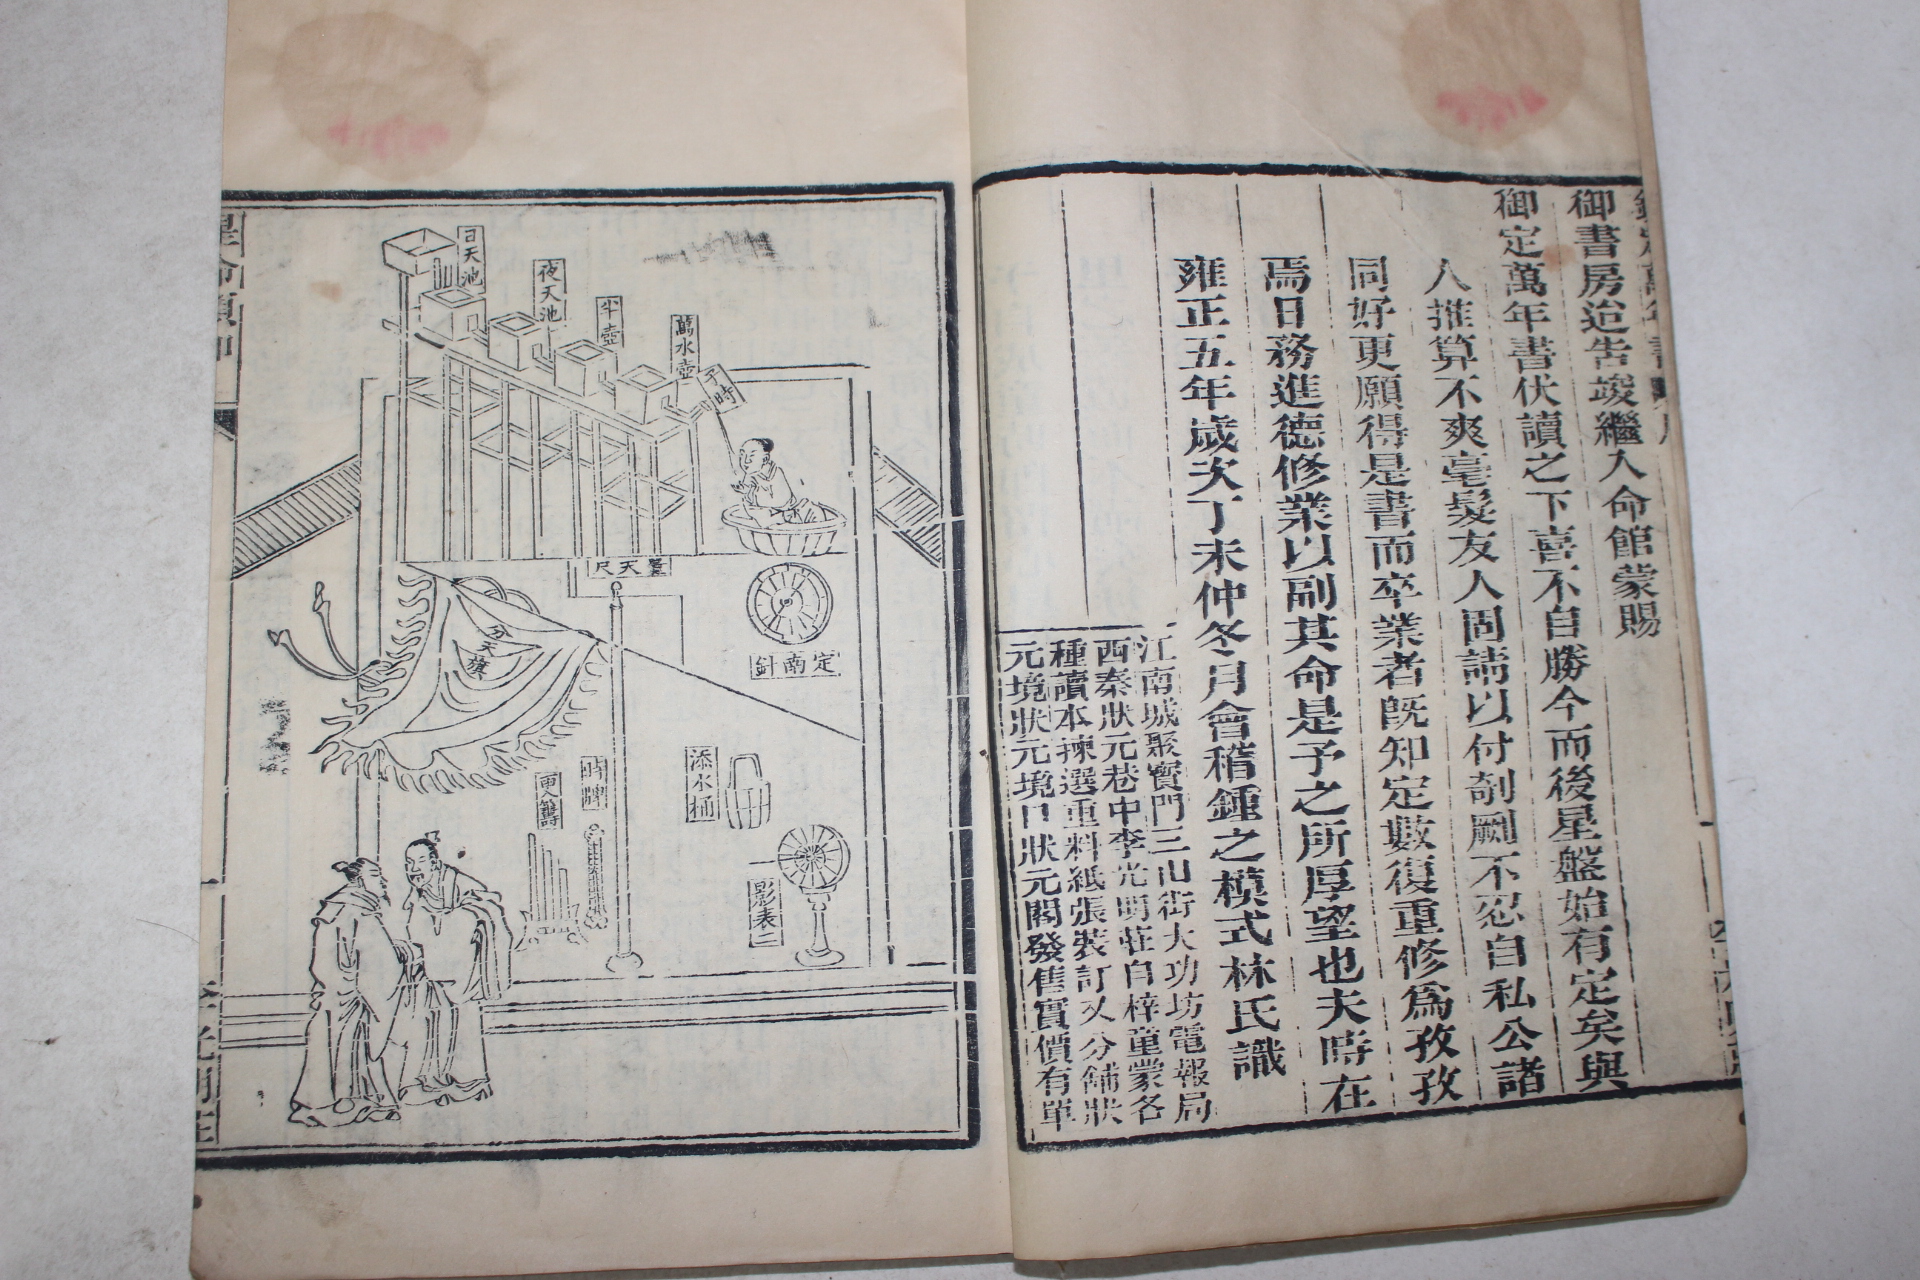 御書房迨告竣繼入命館蒙賜
御定萬年書伏讀之下喜不自勝今而後星盤始有定矣與
人推算不爽毫髮友人固請以付剞劂不忍自私公諸
同好更願得是書而卒業者既知定數復重修爲孜孜
焉日務進德修業以副其命是予之所厚望也夫時在
雍正五年歲次丁未仲冬月會稽鍾之模式林氏識
江南城聚寳門三山街大功坊電報局
西秦狀元巷中李光明莊自梓童蒙各
種讀本揀選重料紙張裝訂又分舖狀
元境狀元境口狀元閣發售實價有單
日天池
夜天池
平壺
萬水壺
子時
量天尺
定南針
分天旗
添水桶
時牌
更籌
影表二
一
李光明莊